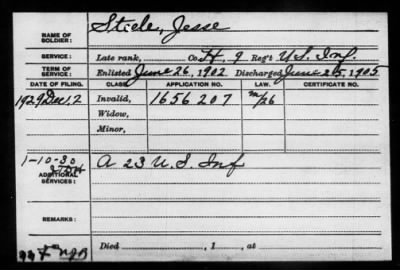 NAME OF SOLDIER: Stiele, Jesse
SERVICE: Late rank, Co. H. 9 Reg't U.S. Inf.
TERM OF SERVICE: Enlisted June 26, 1902 Discharged June 25, 1905
DATE OF FILING. CLASS. APPLICATION NO. LAW. CERTIFICATE NO.
1929 Dec. 2 Invalid, 1656207 m/26
Widow,
Minor,
1-10-30
ADDITIONAL SERVICES: A 23 U.S. Inf
REMARKS:
Died , 1 , at